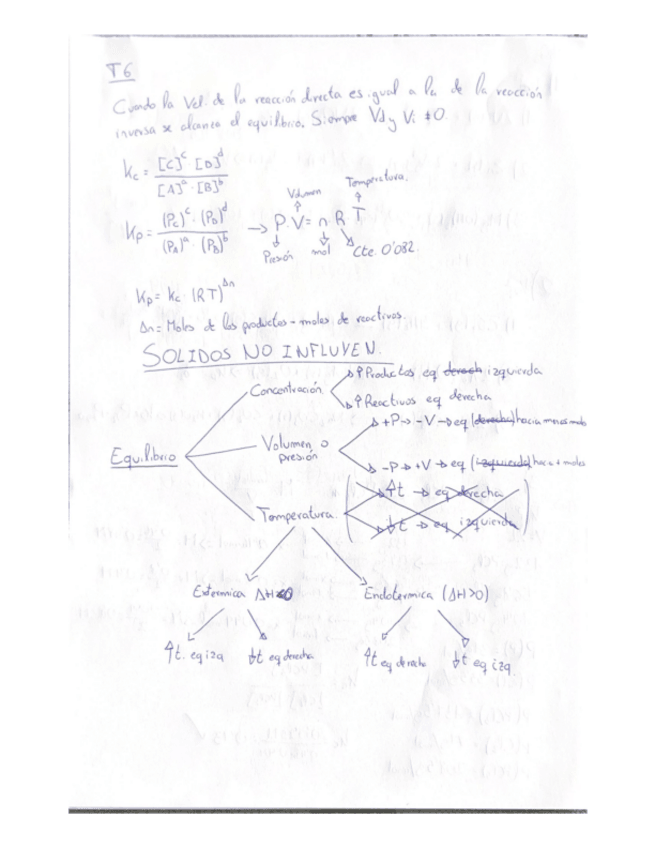 T6
Cuando la Vel. de la reacción directa es igual a la de la reacción
inversa se alcanza el equilibrio. Siempre Vd y Vi ≠ 0.
Kc = [C]^c · [D]^d / [A]^a · [B]^b
Volumen Temperatura.
Kp = (Pc)^c · (PD)^d / (PA)^a · (PB)^b → P · V = n · R T
Presión mol Cte. 0'082.
Kp = Kc · (RT)^Δn
Δn = Moles de los productos - moles de reactivos.
SOLIDOS NO INFLUYEN.
Concentración
↑ Productos eq derech izquierda
↑ Reactivos eq derecha
Equilibrio
Volumen o presión
+P → -V → eq (derecha) hacia menos mols
-P → +V → eq (izquierda) hacia + moles
Temperatura.
↑t → eq derecha
↓t → eq izquierda
Exotermica ΔH<0 Endotermica (ΔH>0)
↑t. eq izq ↓t eq derecha ↑t eq derecha ↓t eq izq